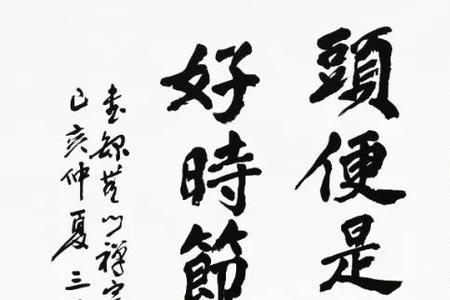 頭便是
好時節
書錄無门禪
己亥仲夏三